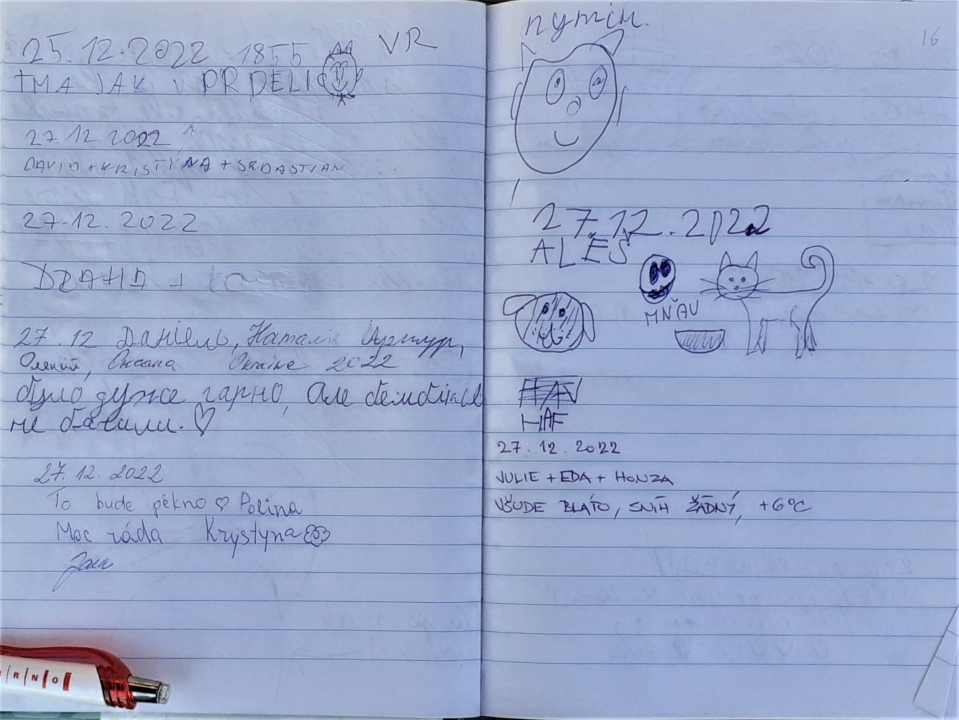 25.12.2022 1855 VR
TMA JAK V PRDELI
27.12 2022
DAVID + KRISTÝNA + SRDASTIAN
27.12.2022
DRAHA +
27.12 Даніель, Наталя
Олексій, Оксана Ukraine 2022
було дуже гарно, Але
не бачили. ♡
27.12.2022
To bude pěkno ♡ Polina
Moc ráda Krystyna
Jan
RNO
путін.
16
27.12.2022
ALEŠ
MŇAU
HAF
27.12.2022
JULIE + EDA + HONZA
VŠUDE BLÁTO, SNÍH ŽÁDNÝ, +6°C